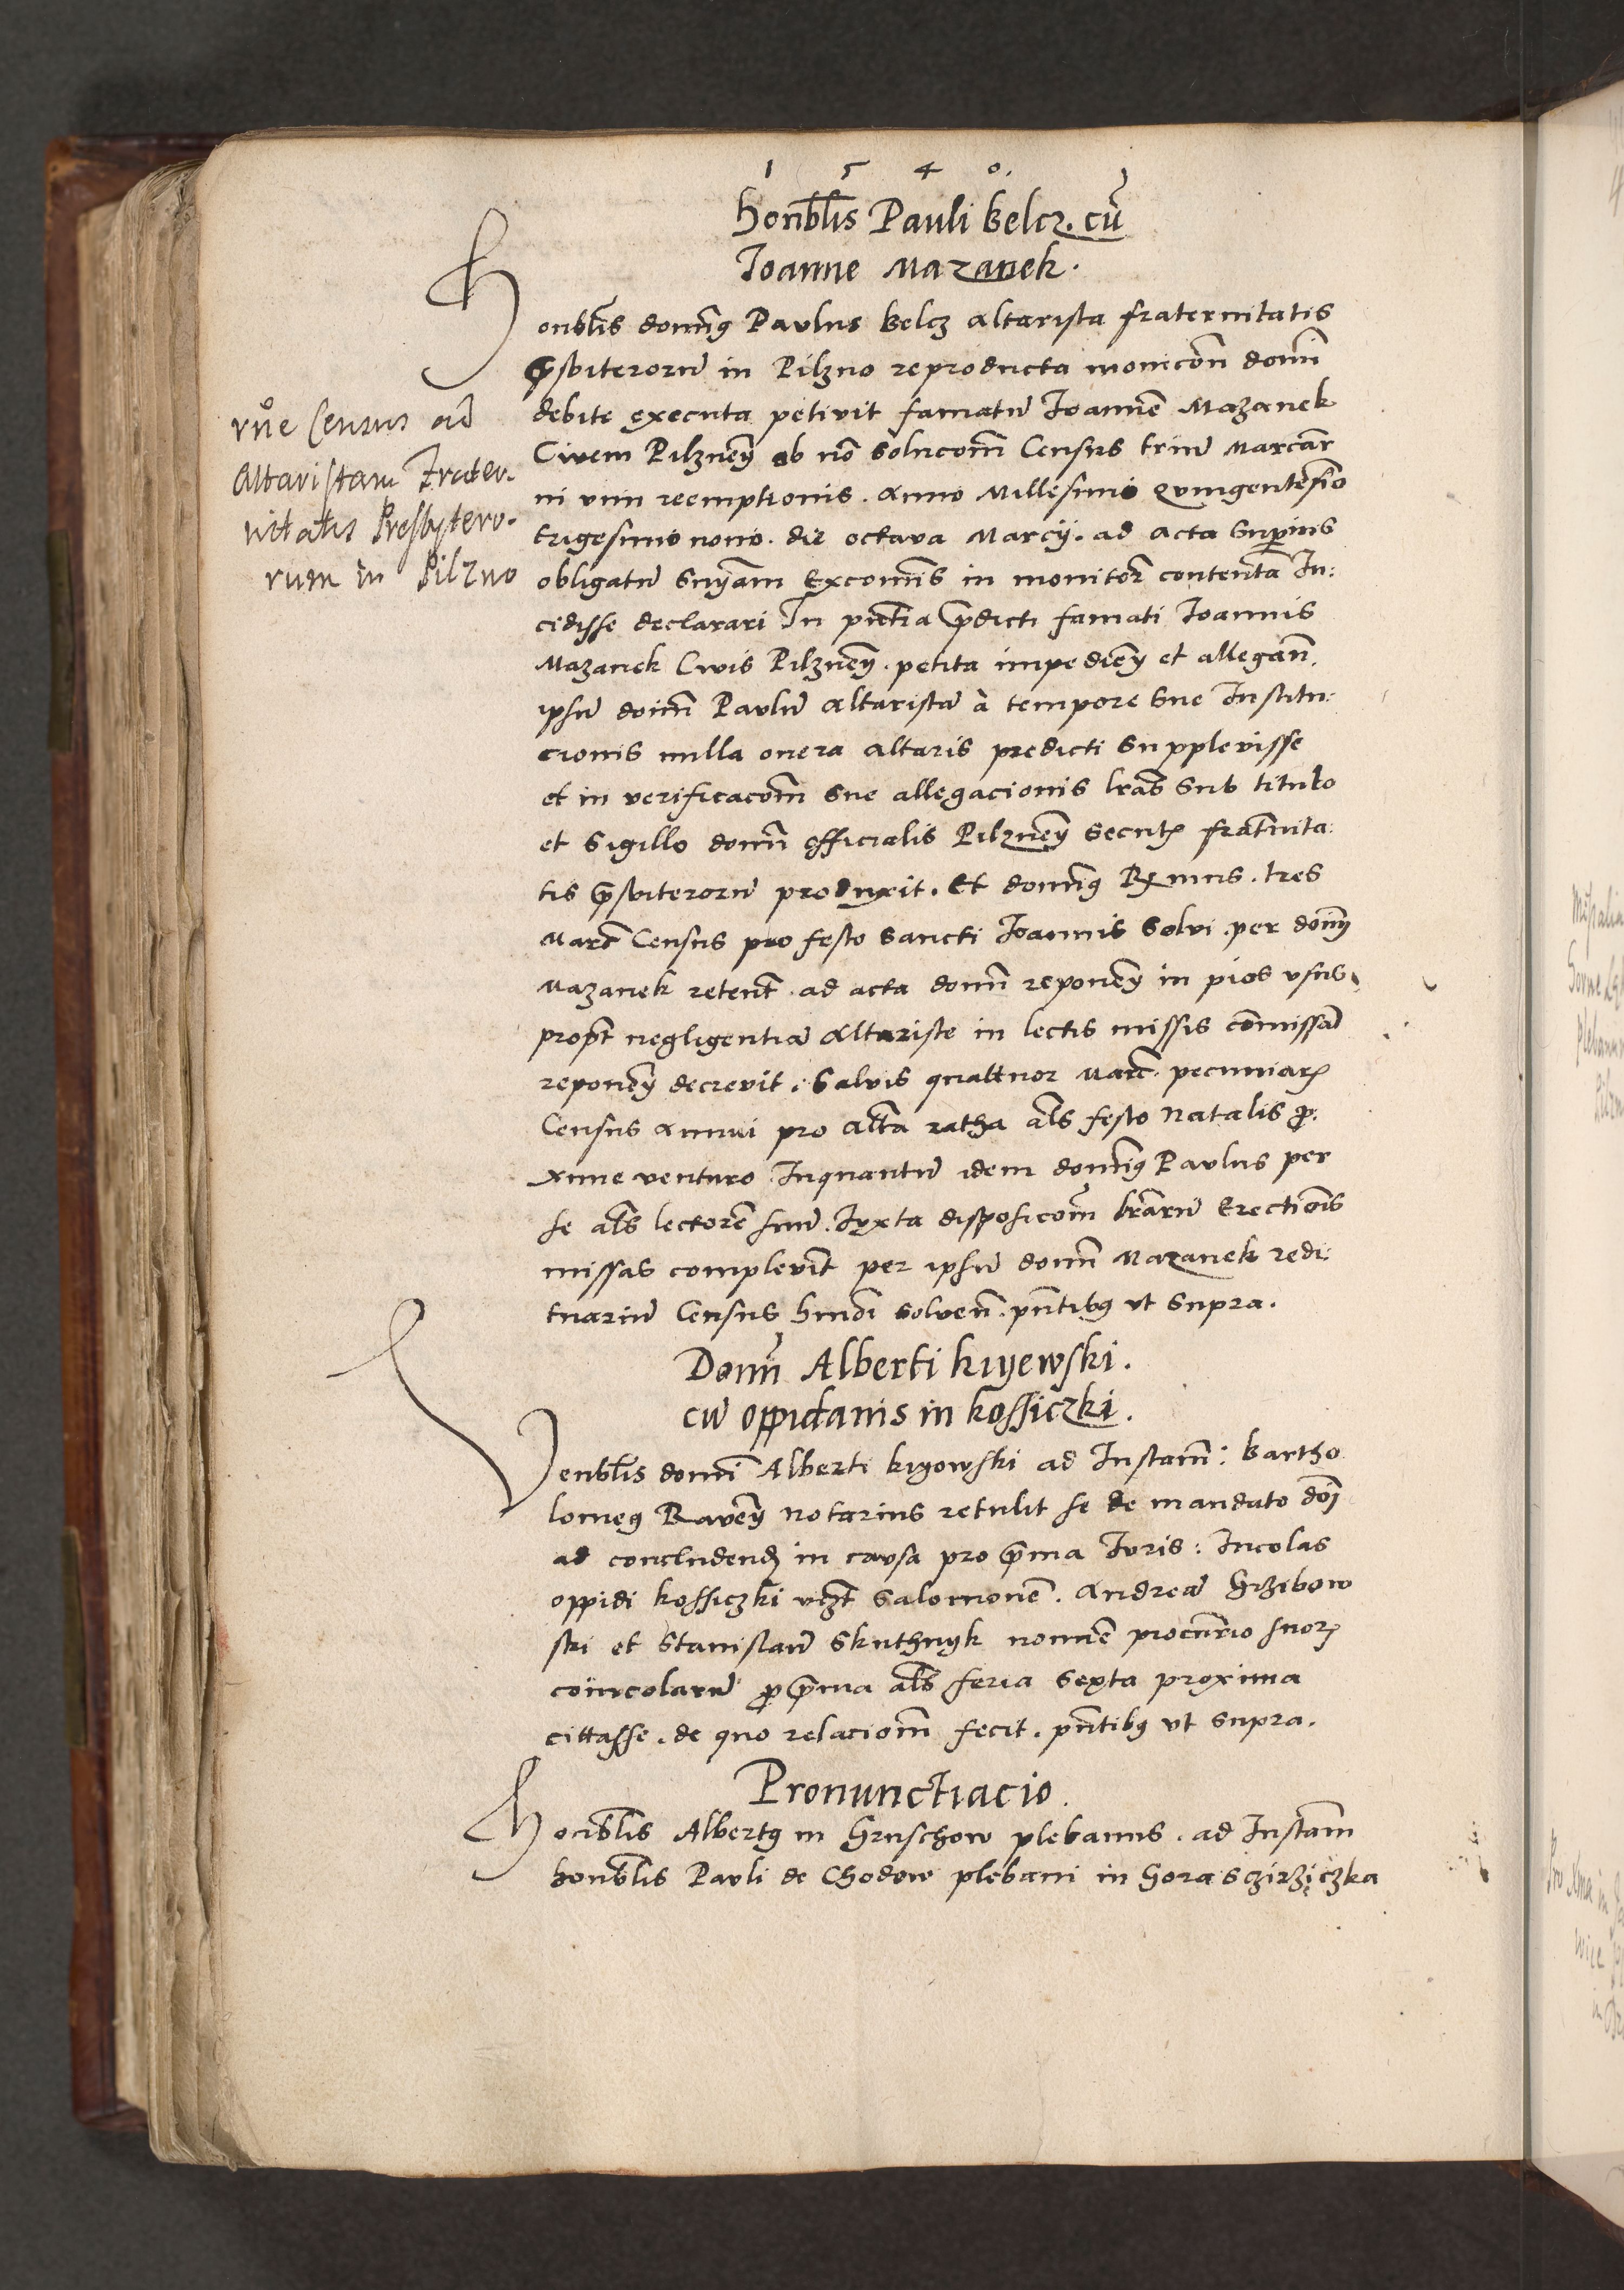 1 5 4 0.
honblis Pauli Belcz. cu
Joanne Mazanek.
Honblis domnus Paulus Belcz altarista fraternitatis
prsbiterorum in Pilzno reproducta monicon domni
debite executa petivit famatum Joannem Mazanek
Civem Pilznen ob no solucom Census trium Marcar
ni vim reemptionis. Anno Millesimo Quingentesimo
trigesimo nono. die octava Marcij. ad acta superius
obligatum Snyam Excomis in monitor contenta In:
cidisse declarari In pntia prdicti famati Joannis
Mazanek Civis Pilznen. petita impedien et allegan.
ipsum domn Paulum altaristam à tempore sue Institu:
cionis nulla onera altaris predicti supplevisse
et in verificacom sue allegacionis lras sub titulo
et sigillo domn officialis Pilznen secutr fratnita:
tis prsbiterorum produxit. Et domnus Rx mus. tres
Marc Census pro festo sancti Joannis solvi per domn
Mazanek retent. ad acta domn reponen in pios vsus
propt negligentia altariste in lectis missis commissa
reponen decrevit. Salvis quattuor Marc. pecuniar
Census annui pro alta ratha als festo Natalis pro.
xime venturo Inquantum idem domnus Paulus per
se als lectorem suum. Iuxta disposicom lrarum Erectionis
missas complevit per ipsum domn Mazanek redi:
tuarium Census hmdi solven. pntibus vt supra.
rne Census ad
Altaristam Frater.
nitatis Presbytero.
rum in Pilzno
Domn Alberti kijewski.
cum oppidanis in kossiczki.
Venblis domni Alberti kigowski ad Instann: Bartho
lomeus Raven Notarius retulit se de mandato doni
ad concludend in causa pro prma Iuris: Incolas
oppidi kossiczki vczt Salomonem. Andream Grzibow
ski et Stanislaum Skuthnyk nomine procurrio suor
coincolarum pro prma als feria sexta proxima
cittasse. de quo relaciom fecit. pntibus vt supra.
Pronunctiacio.
Honblis Albertus in Gruschow plebanus. ad Instam
honblis Pauli de Chodow plebani in Gora Sczirziczka